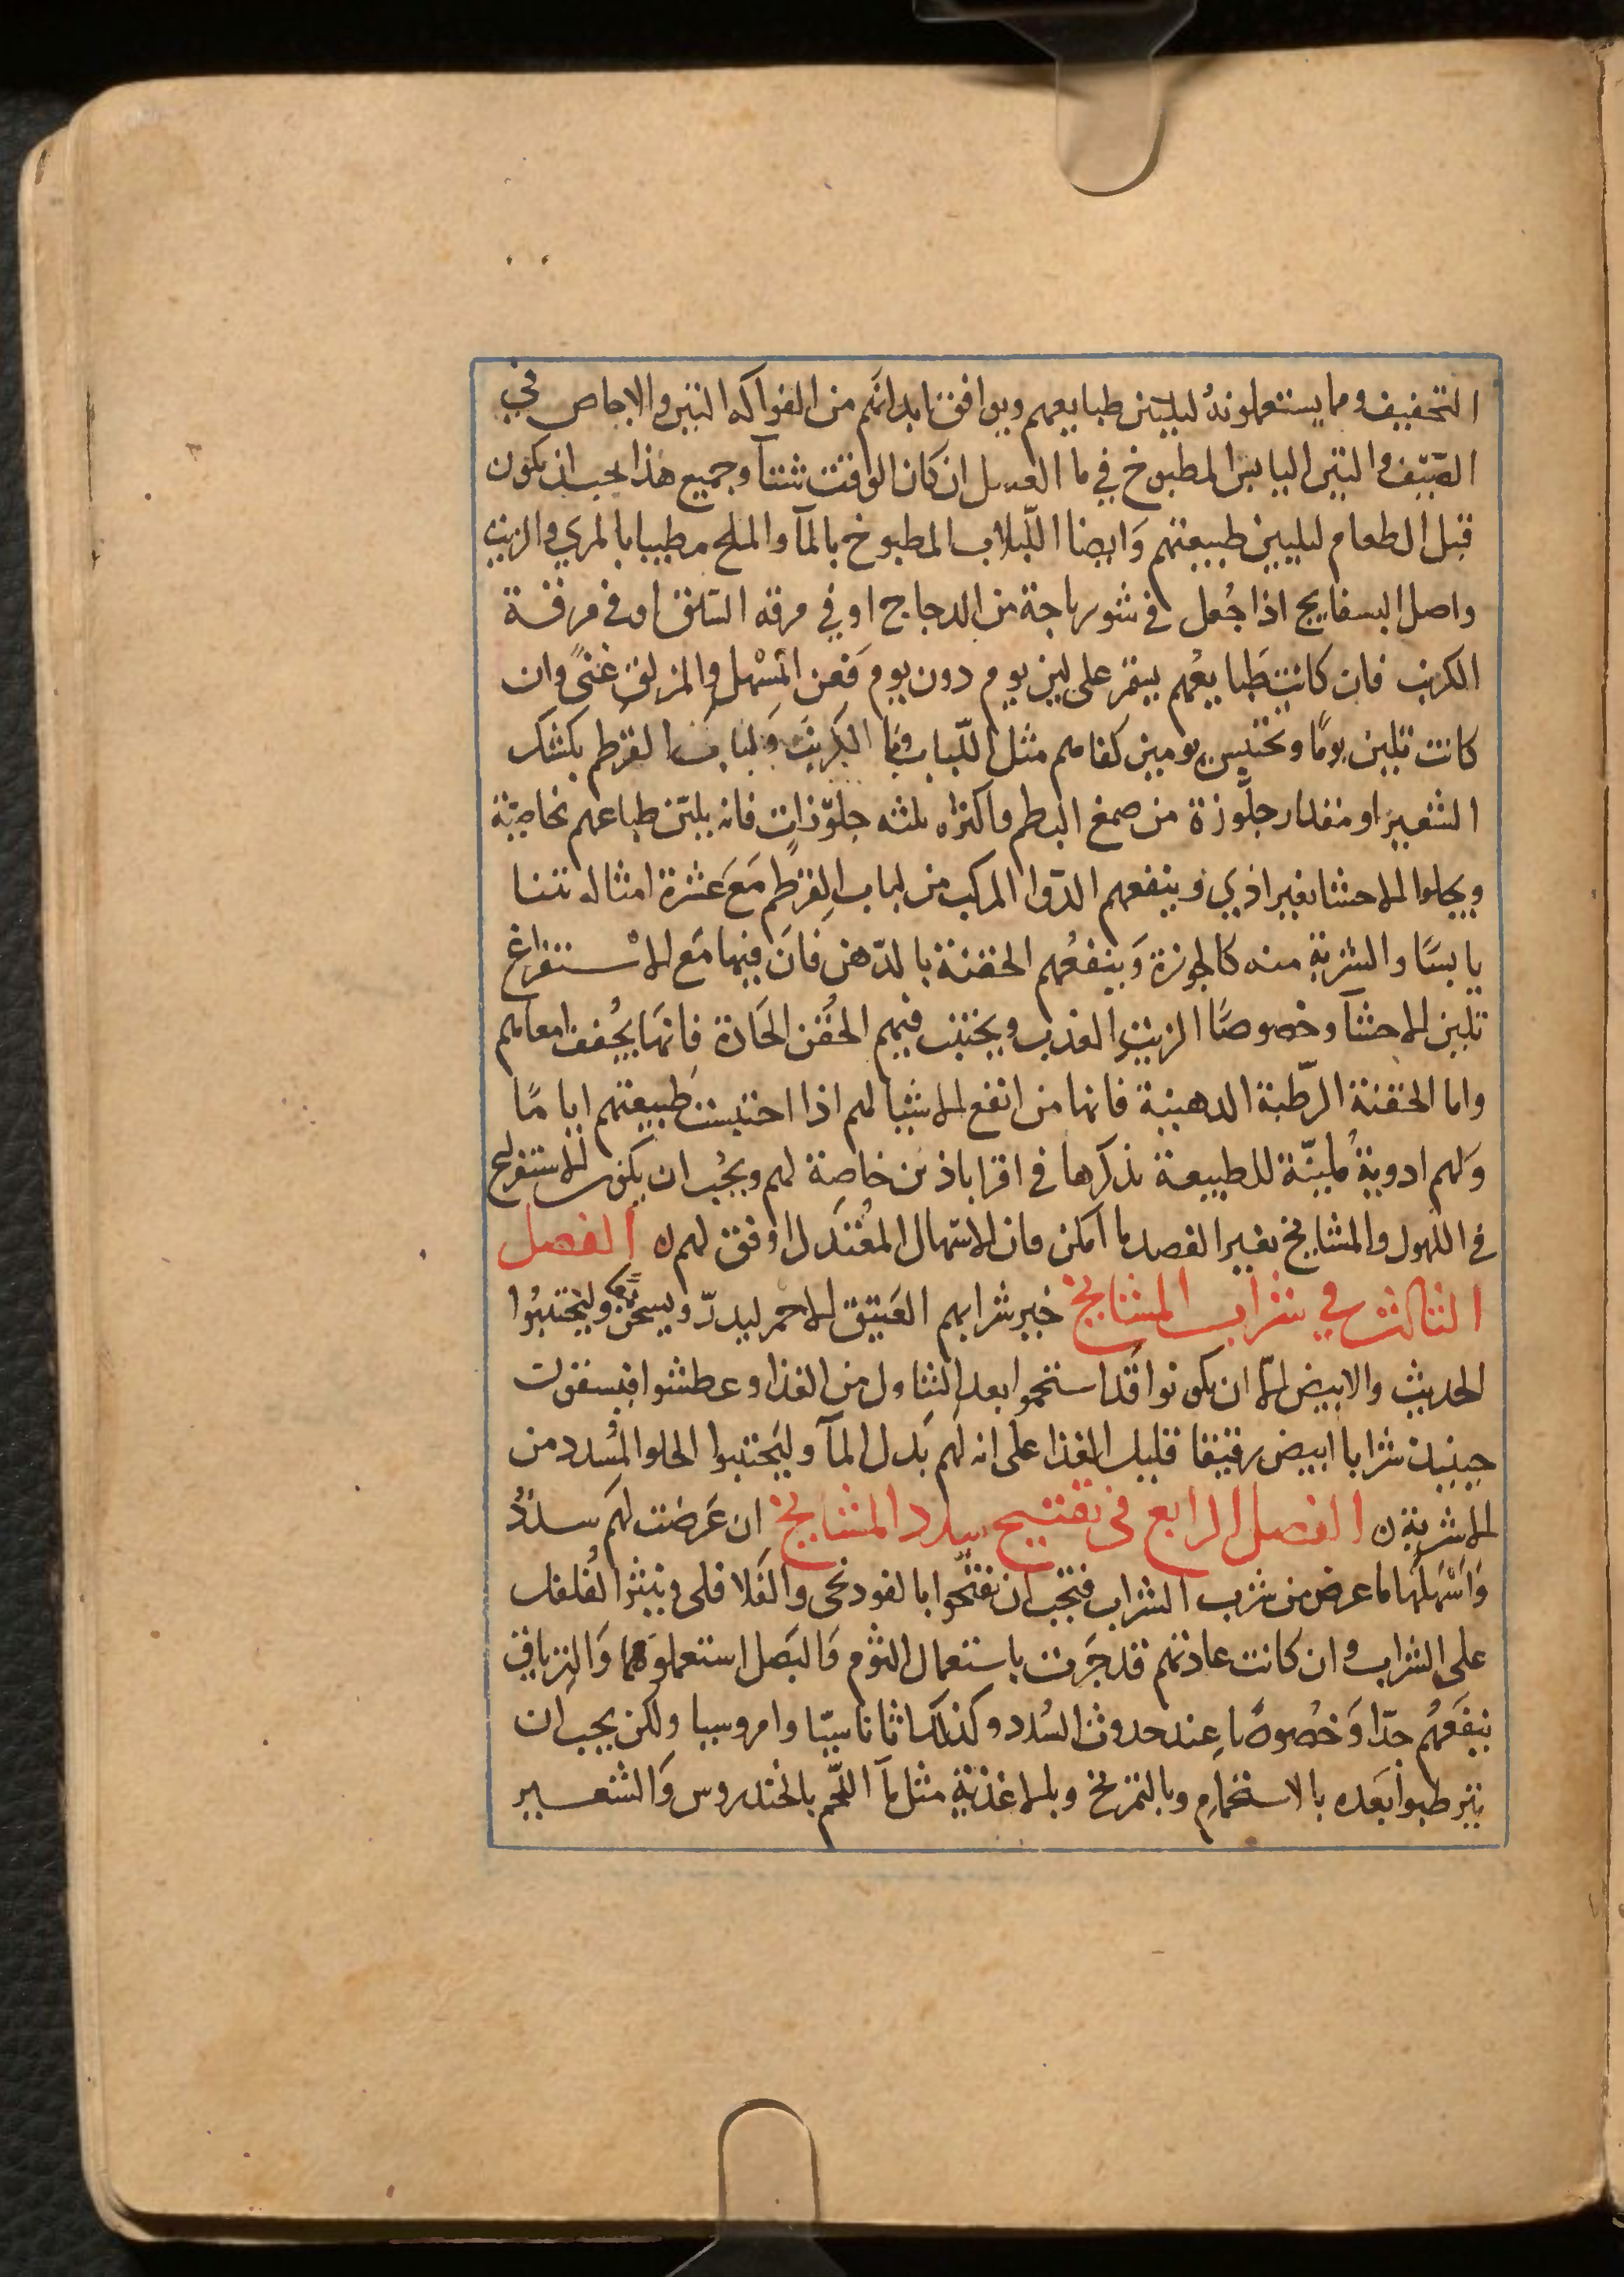 التخفيف ومما يستعملونه لتليين طبايعهم ويوافق ابدانهم من الفواكه التين والاجاص في
الصيف والتين اليابس المطبوخ في ما العسل ان كان الوقت شتآ وجميع هذا يجب ان يكون
قبل الطعام لتليين طبيعتهم وَايضا اللّبلاب المطبوخ بالمآ والملح مطيبا بالمري والزيت
واصل البسفايج اذا جُعل في شورباجة من الدجاج او في مرقه السلق او في مرقة
الكرنب فان كانت طَبايعُهم يستمر على لين يوم دون يوم فَعن المُسْهل والمزلق غنًى وان
كانت تلين يومًا وتحتبس يومين كفاهم مثل اللّبلاب ومَا الكرنب وَلباب القرطم بكشك
الشعير او مقدار جلّوزة من صمغ البطم واكثره ثلثه جلوّزاتٍ فانه يليّن طباعهم بخاصيّة
ويجلوا الاحشا بغير اذي وينفعهم الدّوا المركب من لباب القرطم مَعَ عَشرة امثاله تينا
يابسًا والشربة منه كالجوزة وَينفعُهم الحقنة بالدّهن فانَ فيها مَع الاستفراغ
تليين الاحشآ وخصوصًا الزيت العذب ويجتنب فيهم الحُقن الحَادة فانهَا يُجفف امعاهم
واما الحقنة الرّطبة الدهنية فانها من انفع الاشيا لهم اذا احتبست طبيعتهم اياما
وَلهم ادوية مُليّنة للطبيعة نذكرها في اقراباذين خاصة لهم ويجُب ان يكون الاستفراغ
في الكهول والمشايخ بغير الفصد ما امكن فان الاسهال المعُتدل اوفق لهم ن الفصل
الثالث في شراب المشايخ خير شرابهم العَتيق الاحمر ليدرّ ويسخن معا وليَجتنبُوا
الحديث والابيض الّا ان يكونوا قدَ استحموا بعد التناول من الغذا وعطشوا فيسقون
حينيذ شرابا ابيض رقيقا قليل الغذا على انه لهَم بَدل المآ وليَجتنبوا الحلو المُسدد من
الاشربة ن الفصل الرابع في تفتيح سدد المشايخ ان عَرضت لهَم سددُ
وَاسْهلهَا ما عرض من شرب الشراب فيجَب ان يفتّحوا بالفودنجى والفَلافلى وينثر الفُلفل
على الشراب وان كانت عادتهم قد جَرت باستعمال الثوم وَالبَصل استعملوهَما وَالترياق
ينفعَهُم جدّا وَخصُوصًا عِند حدوث السُدد وكذلك اثاناسيّا وامروسيا ولكن يجب ان
يترطبوا بَعده بالاستحمامِ وبالتمريخ وبالاغذيةِ مثل مآ اللّحم بالخندروس وَالشعير